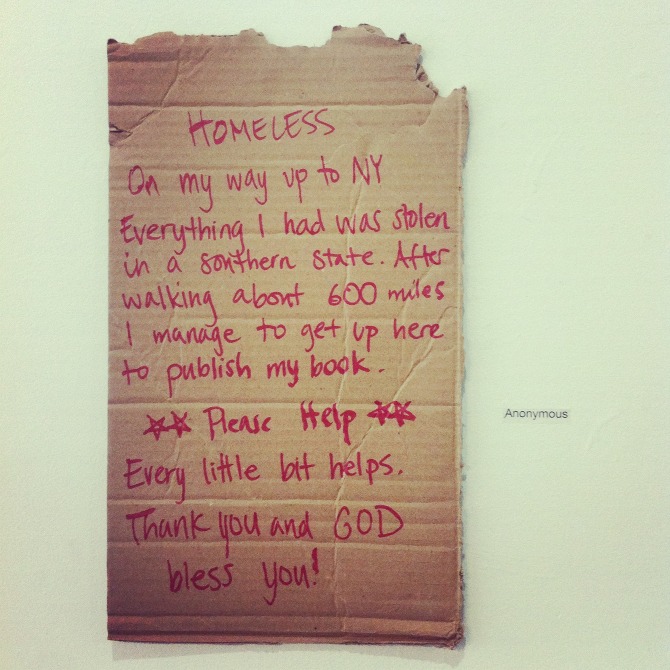 HOMELESS
On my way up to NY
Everything I had was stolen
in a southern state. After
walking about 600 miles
I manage to get up here
to publish my book.
** Please Help **
Every little bit helps.
Thank you and GOD
bless you!
Anonymous